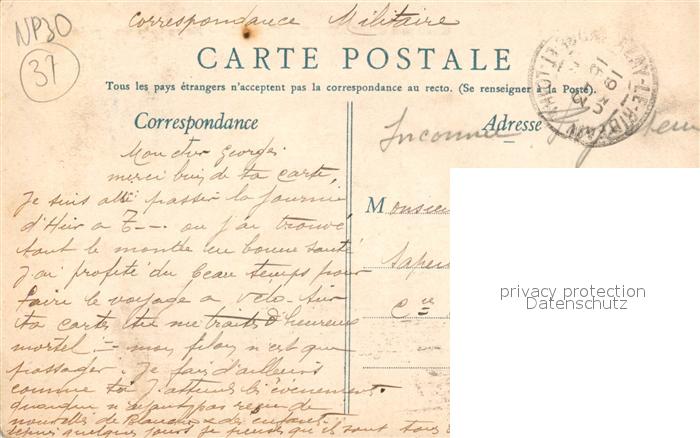 NP30
37
Correspondance Militaire
CARTE POSTALE
Tous les pays étrangers n'acceptent pas la correspondance au recto. (Se renseigner à la Poste).
Correspondance
Adresse
Inconnu
Mon cher Georges
merci bien de ta carte,
Je suis allé passer la journée
d'Hier a T--. ou j'ai trouvé
tout le monde en bonne santé
J'ai profité du beau temps pour
faire le voyage a vélo. Sur
ta carte tu me traites d'heureux
mortel. mon filon n'est que
passager. Je fais d'ailleurs
comme toi J'attends les évènements
quoique n'ayant pas reçu de
nouvelles de Blanche & des enfants
depuis quelques jours je pense qu'ils sont tous
Monsieu
Sapeu
Cie
privacy protection
Datenschutz